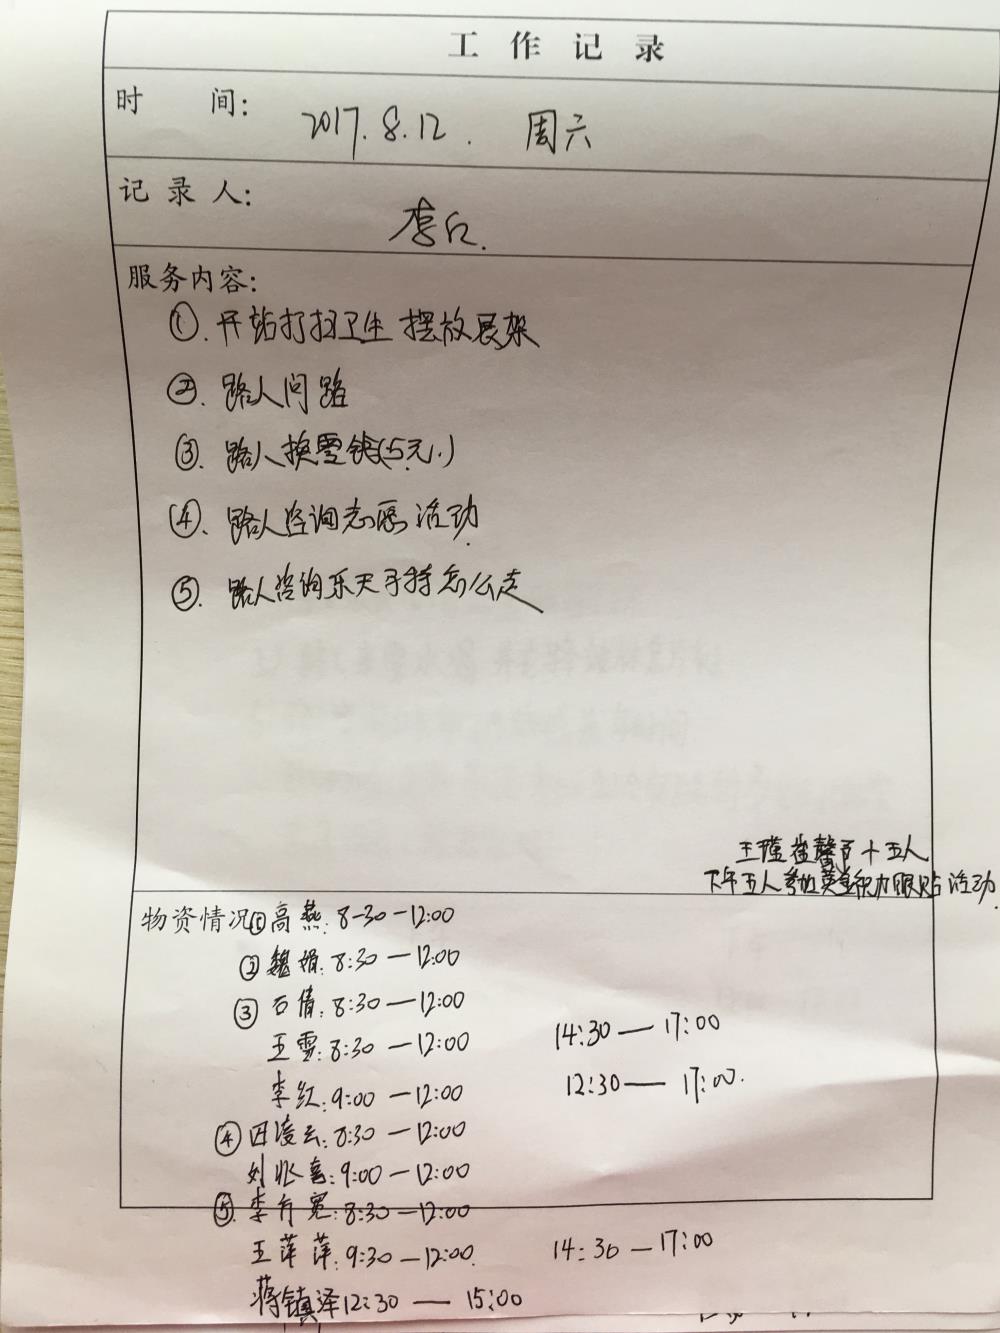 工作记录
时 间: 2017.8.12. 周六
记录人: 李红.
服务内容:
①.开站打扫卫生 摆放展架
②.路人问路
③.路人换零钱(5元.)
④.路人咨询志愿活动.
⑤.路人咨询乐天玛特怎么走
王瑾 崔馨 十五人
下午五人参加 活动.
物资情况①高燕:8-30-12:00
②魏娟:8:30-12:00
③石倩:8:30-12:00
王雪:8:30-12:00 14:30-17:00
李红:9:00-12:00 12:30-17:00.
④田凌云:8:30-12:00
刘 喜:9:00-12:00
⑤.李方宽:8:30-12:00
王萍萍:9:30-12:00. 14:30-17:00
蒋镇泽12:30-15:00